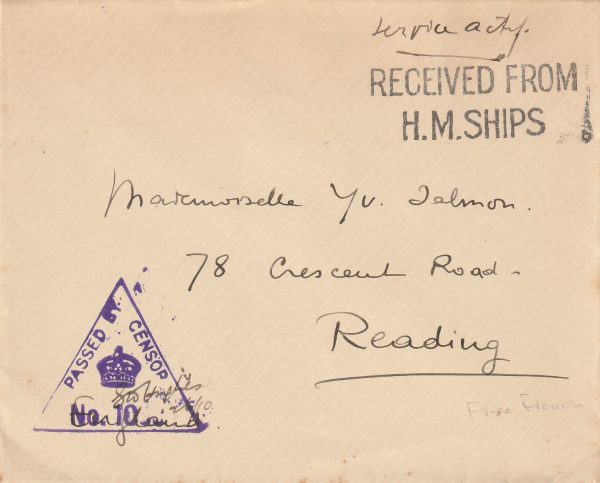 service acty.
RECEIVED FROM
H.M.SHIPS
Mademoiselle Yv. Telmon.
78 Crescent Road.
Reading
PASSED BY CENSOR
No. 10
England
Free French